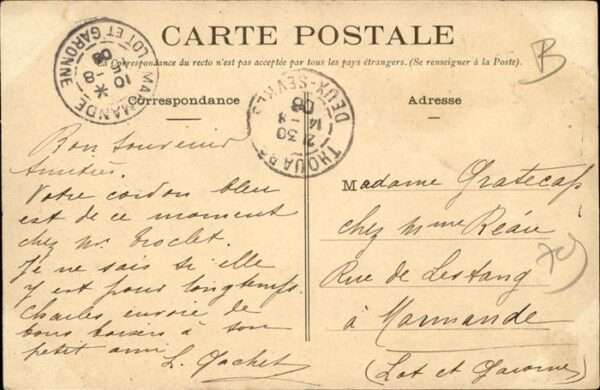 CARTE POSTALE
La Correspondance du recto n'est pas acceptée par tous les pays étrangers. (Se renseigner à la Poste).
MARMANDE
LOT ET GARONNE
THOUARS
DEUX-SÈVRES
2 30
14 - 8
08
Correspondance
Bon souvenir
Amitiés.
Votre cordon bleu
est de ce moment
chez Mr Troclet.
Je ne sais si elle
y est pour longtemps.
Charles envoie de
bons baisers à son
petit ami
L. Gachet
Adresse
Madame Gratecap
chez Mme Réau
Rue de Lestang
à Marmande
(Lot et Garonne)
B